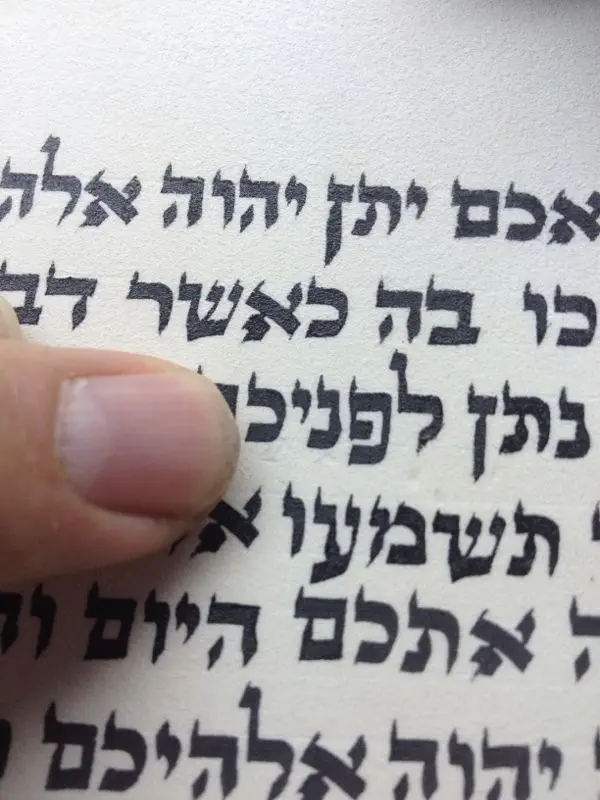 אכם יתן יהוה אלה
כו בה כאשר דב
נתן לפניכ
תשמעו א
ה אתכם היום וה
יהוה אלהיכם